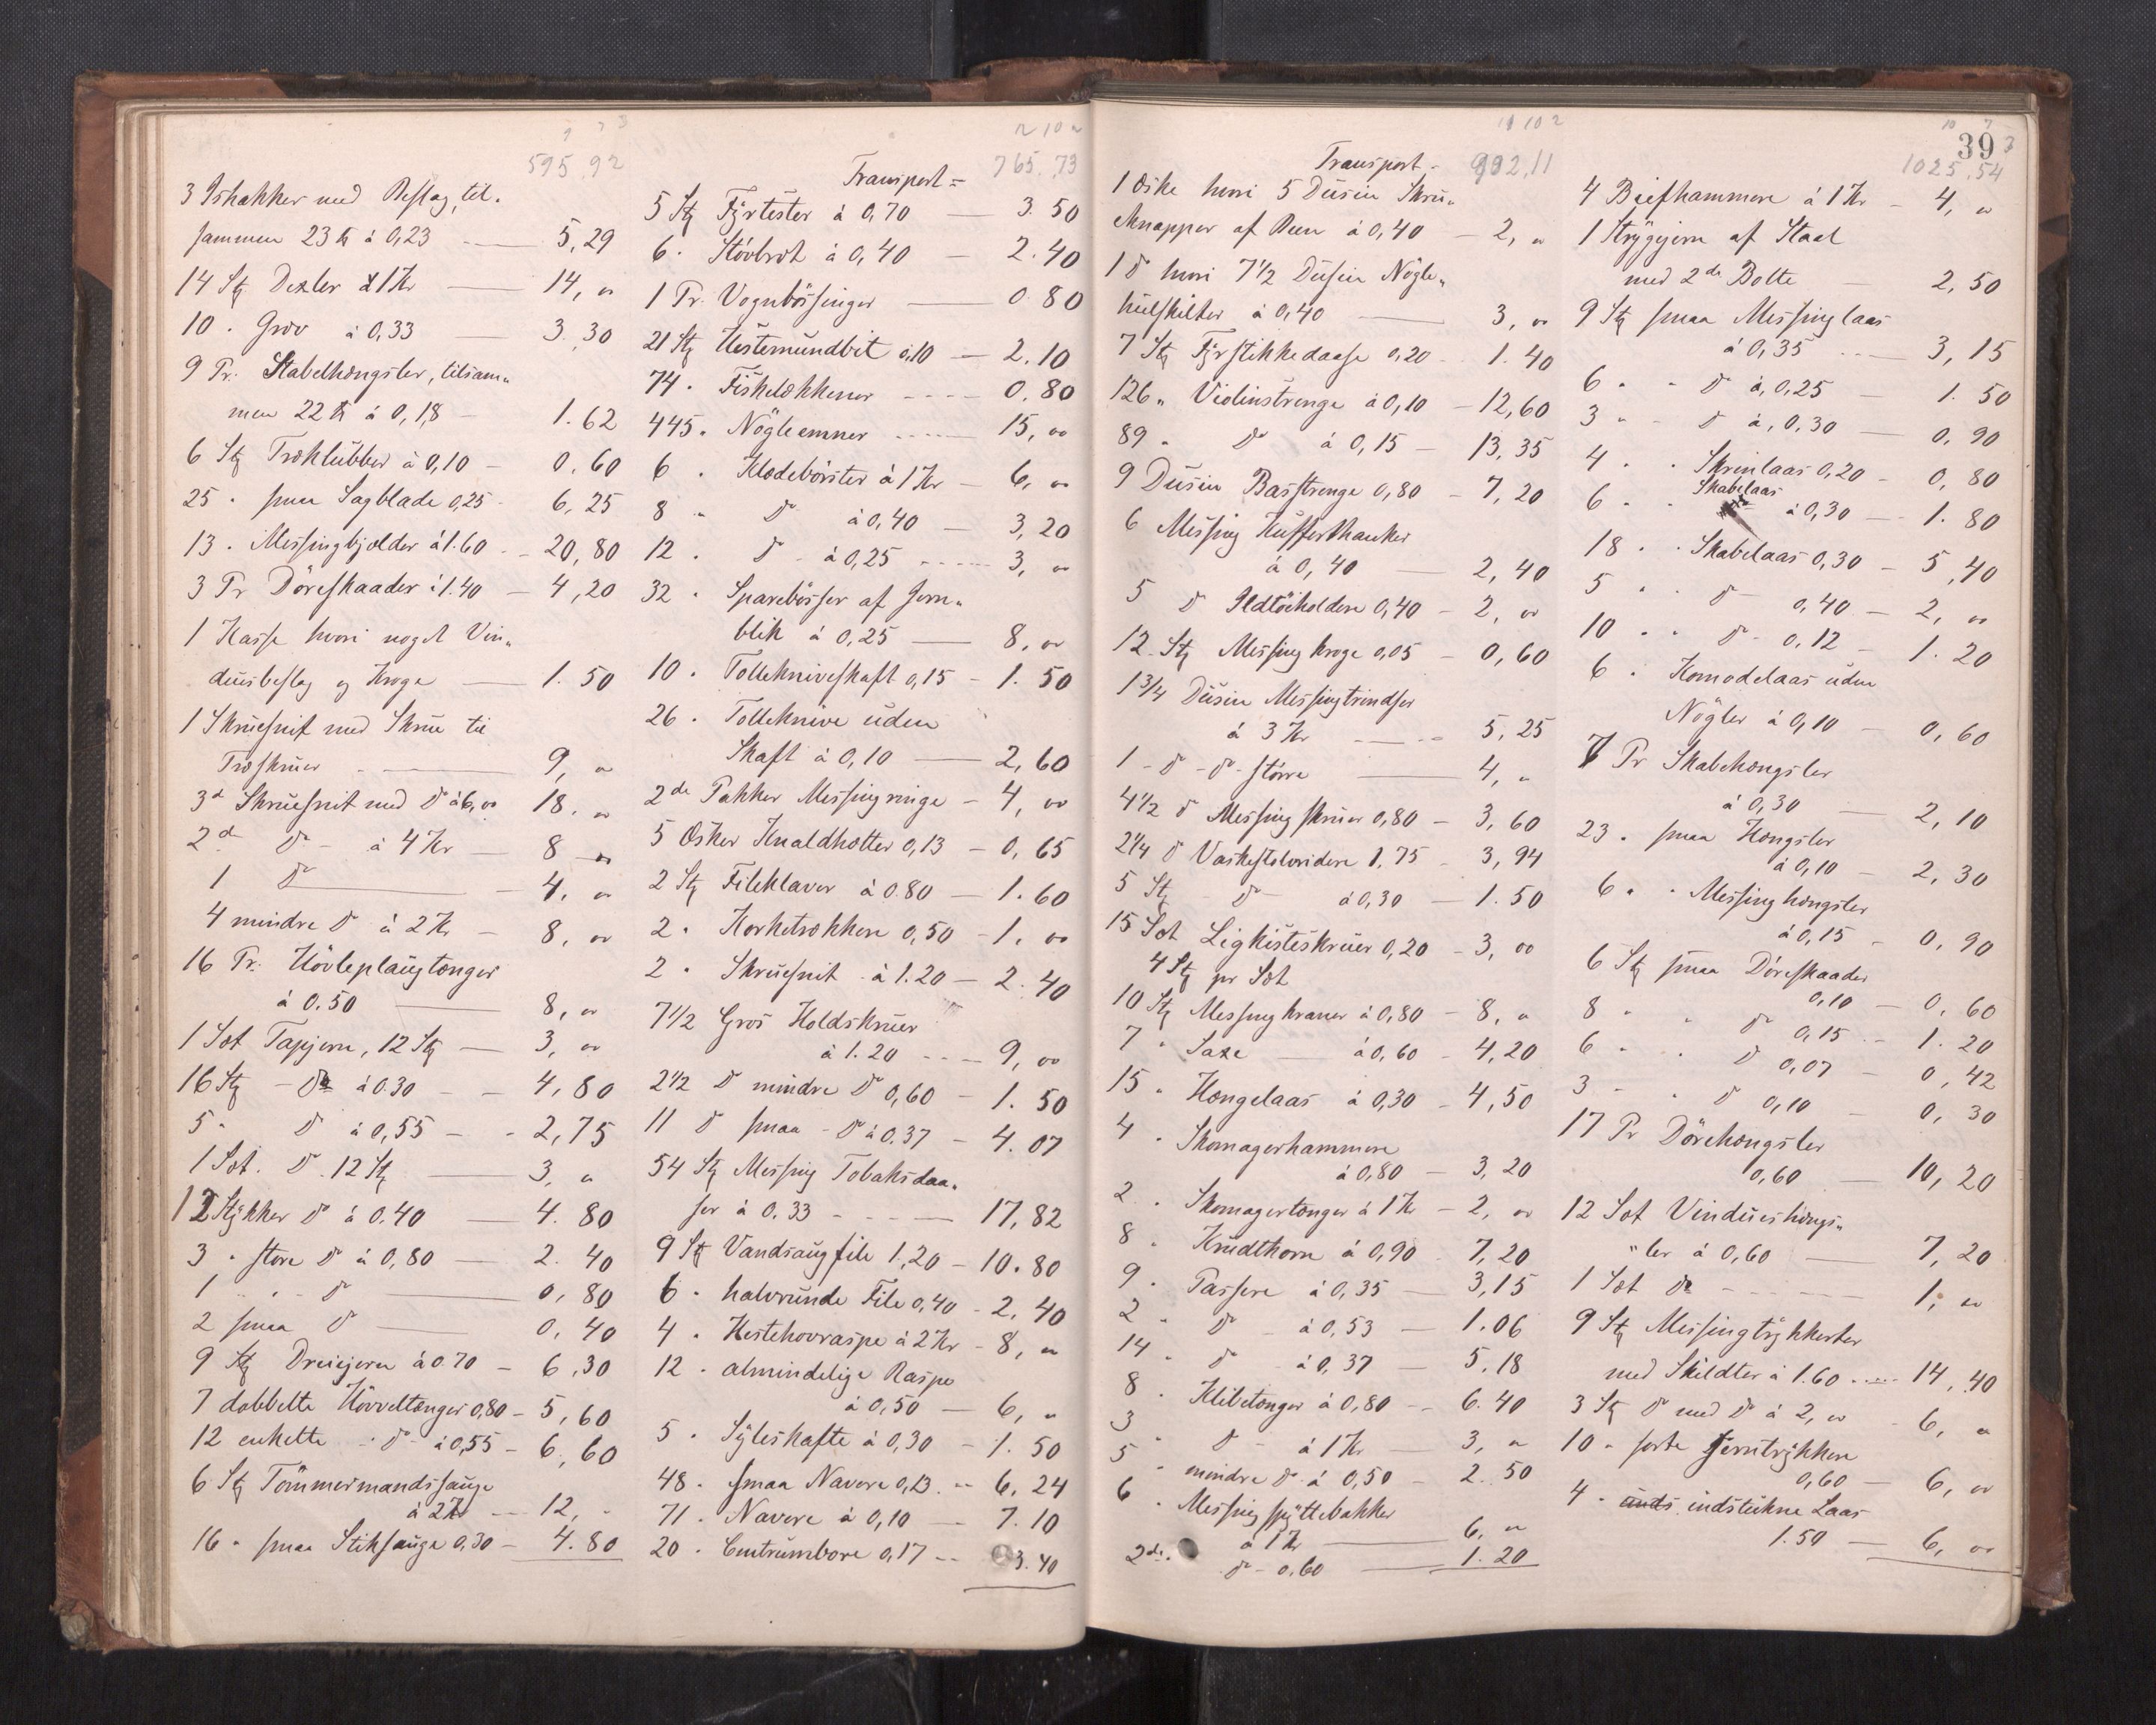 595,92
3 Ishakker med Beslag, til-
sammen 23 ℔ à 0,23 — 5,29
14 Stz Dexler à 1 Kr — 14, "
10 " Grev à 0,33 — 3.30
9 Pr. Stabelhængsler, tilsam-
men 22 ℔ à 0,18 — 1.62
6 Stz Træklubber à 0,10 — 0,60
25 " smaa Sagblade 0,25 - 6,25
13 " Messingbjelder à 1.60 - 20,80
3 Pr Döreskaader à 1.40 — 4,20
1 Kasse hvori noget Vin-
duesbeslag og Kroge — 1.50
1 Skruesnit med Skrue til
Træskruer — 9, "
3de Skruesnit med Do à 6,00 18, "
2de Do - à 4 Kr - 8 "
1 Do — 4, "
4 mindre Do à 2 Kr - 8, "
16 Pr. Hövleplougtænger
à 0.50 — 8, "
1 Sæt Tapjern, 12 Stz — 3, "
16 Stz - Do à 0.30 - - 4,80
5 " Do à 0,55 - - 2,75
1 Sæt. Do. 12 Stz — 3, "
12 Stykker Do à 0.40 — 4.80
3 " store Do à 0,80 — 2.40
1 " - Do — 0,80
2 smaa Do — 0,40
9 Stz Dreiejern à 0.70 - 6,30
7 dobbelte Hövveltænger 0,80 - 5,60
12 enkelte - Do - à 0,55 - 6,60
6 Stz Tömmermandssauge
à 2 Kr — 12, -
16 " smaa Stiksauge 0,30 - 4.80
Transport = 765,73
5 Stz Fyrtester à 0,70 — 3.50
6 " Stövbret à 0,40 - 2.40
1 Pr. Vognbössinger — 0.80
21 Stz Hestemundbit 0,10 — 2.10
74 " Fiskekrokkener - - - - 0.80
445 " Nögleemner - - - - 15, "
6 " Klædebörster à 1 Kr - 6, "
8 " Do à 0,40 — 3,20
12 " Do - à 0,25 - - - - 3, "
32 " Sparebösser af Jern-
blik à 0,25 — 8, "
10 " Tolleknivskaft 0,15 - 1.50
26 " Tolleknive uden
Skaft à 0,10 — 2,60
2de Pakker Messingringe - 4, "
5 Æsker Knaldhætter 0,13 - 0,65
2 Stz Fileklaver à 0.80 — 1.60
2 " Korketrækkere 0,50 - 1, "
2 " Skruesnit - à 1.20 — 2.40
7½ Gros Holdskruer
à 1.20 - - - - 9, "
2½ D mindre Do 0,60 - 1.50
11 D smaa - Do à 0.37 - 4.07
54 Stz Messing Tobaksdaa-
ser à 0.33 - - - 17,82
9 Stz Vandsaugfile 1,20 - 10.80
6 " halvrunde File 0,40 - 2,40
4 " Hestehovraspe à 2 Kr - 8, "
12 " almindelige Raspe
à 0,50 — 6, "
5 " Syleskafte à 0,30 - 1.50
48 " smaa Navere 0,13 - - 6,24
71 " Navere à 0,10 — 7.10
20 " Centrumbore 0,17 - - 3.40
Transport - 902,11
1 Æske hvori 5 Dusin Skru-
knapper af Been à 0,40 - 2, "
1 Do hvori 7½ Dusin Nögle-
hulskilter à 0,40 — 3, "
7 Stz Fyrstikkedaase 0,20 - 1.40
126 " Violinstrenge à 0,10 - 12,60
89 " Do à 0,15 - 13,35
9 Dusin Basstrenge 0,80 - 7,20
6 Messing Kufferthanker
à 0,40 — 2,40
5 Do Ildtöiholdere 0,40 - 2, "
12 Stz Messingkroge 0,05 - 0,60
1¾ Dusin Messingtrindser
à 3 Kr — 5,25
1 - Do - Do - större — 4, "
4½ D Messingskruer 0,80 - 3,60
2¼ D Vaskestolvridere 1,75 - 3,94
5 Stz - Do - à 0,30 - 1.50
15 Sæt Ligkisteskruer 0,20 - 3, "
4 Stz pr Sæt
10 Stz Messingkraner à 0,80 - 8, "
7 " Saxe — à 0,60 - 4,20
15 " Hængelaas à 0,30 - 4,50
4 " Skomagerhammere
à 0,80 - 3,20
2 " Skomagertænger à 1 Kr - 2, "
8 " Krudthorn à 0,90 - 7,20
9 " Passere à 0,35 — 3,15
2 " Do - à 0,53 - 1.06
14 " Do - à 0,37 - 5.18
8 " Klibetænger à 0,80 - - 6.40
3 " Do - à 1 Kr — 3, "
5 " mindre Do - à 0,50 - 2.50
6 " Messing spyttebakker
à 1 Kr — 6, "
2de " Do - 0,60 — 1.20
39
1025,54
4 Biefhammere à 1 Kr - 4, "
1 Strygejern af Staal
med 2de Bolte — 2,50
9 Stz smaa Messinglaas
à 0,35 - - 3,15
6 " - Do à 0,25 - 1.50
3 " - Do à 0.30 - 0,90
4 " " Skrinlaas 0,20 - 0,80
6 " " Skabelaas à 0,30 - 1.80
18 " " Skabelaas 0,30 - 5,40
5 " " Do 0,40 - 2, "
10 " " Do - 0,12 - 1.20
6 " Komodelaas uden
Nögler à 0,10 - 0,60
7 Pr Skabehængsler
à 0,30 — 2,10
23 " smaa Hængsler
à 0,10 - 2,30
6 " " Messinghængsler
à 0,15 - 0,90
6 Stz smaa Döreskaader
0,10 - 0,60
8 " " Do 0,15 - 1.20
6 " " Do 0,07 - 0,42
3 " " Do 0,10 - 0,30
17 Pr Dörehængsler
0,60 — 10,20
12 Sæt Vindueshængs-
"ler à 0,60 — 7,20
1 Sæt Do - - - - - 1, "
9 Stz Messingtrykkerter
med Skildter à 1.60 - - - 14,40
3 Stz Do med Do à 2,00 - 6, "
10 " sorte Jerntrykkere
0,60 - 6, "
4 " unds indstukne Laas
1.50 — 6, "